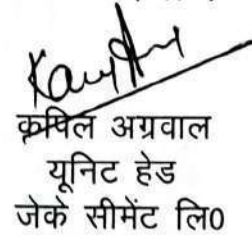 कपिल अग्रवाल
यूनिट हेड
जेके सीमेंट लि0